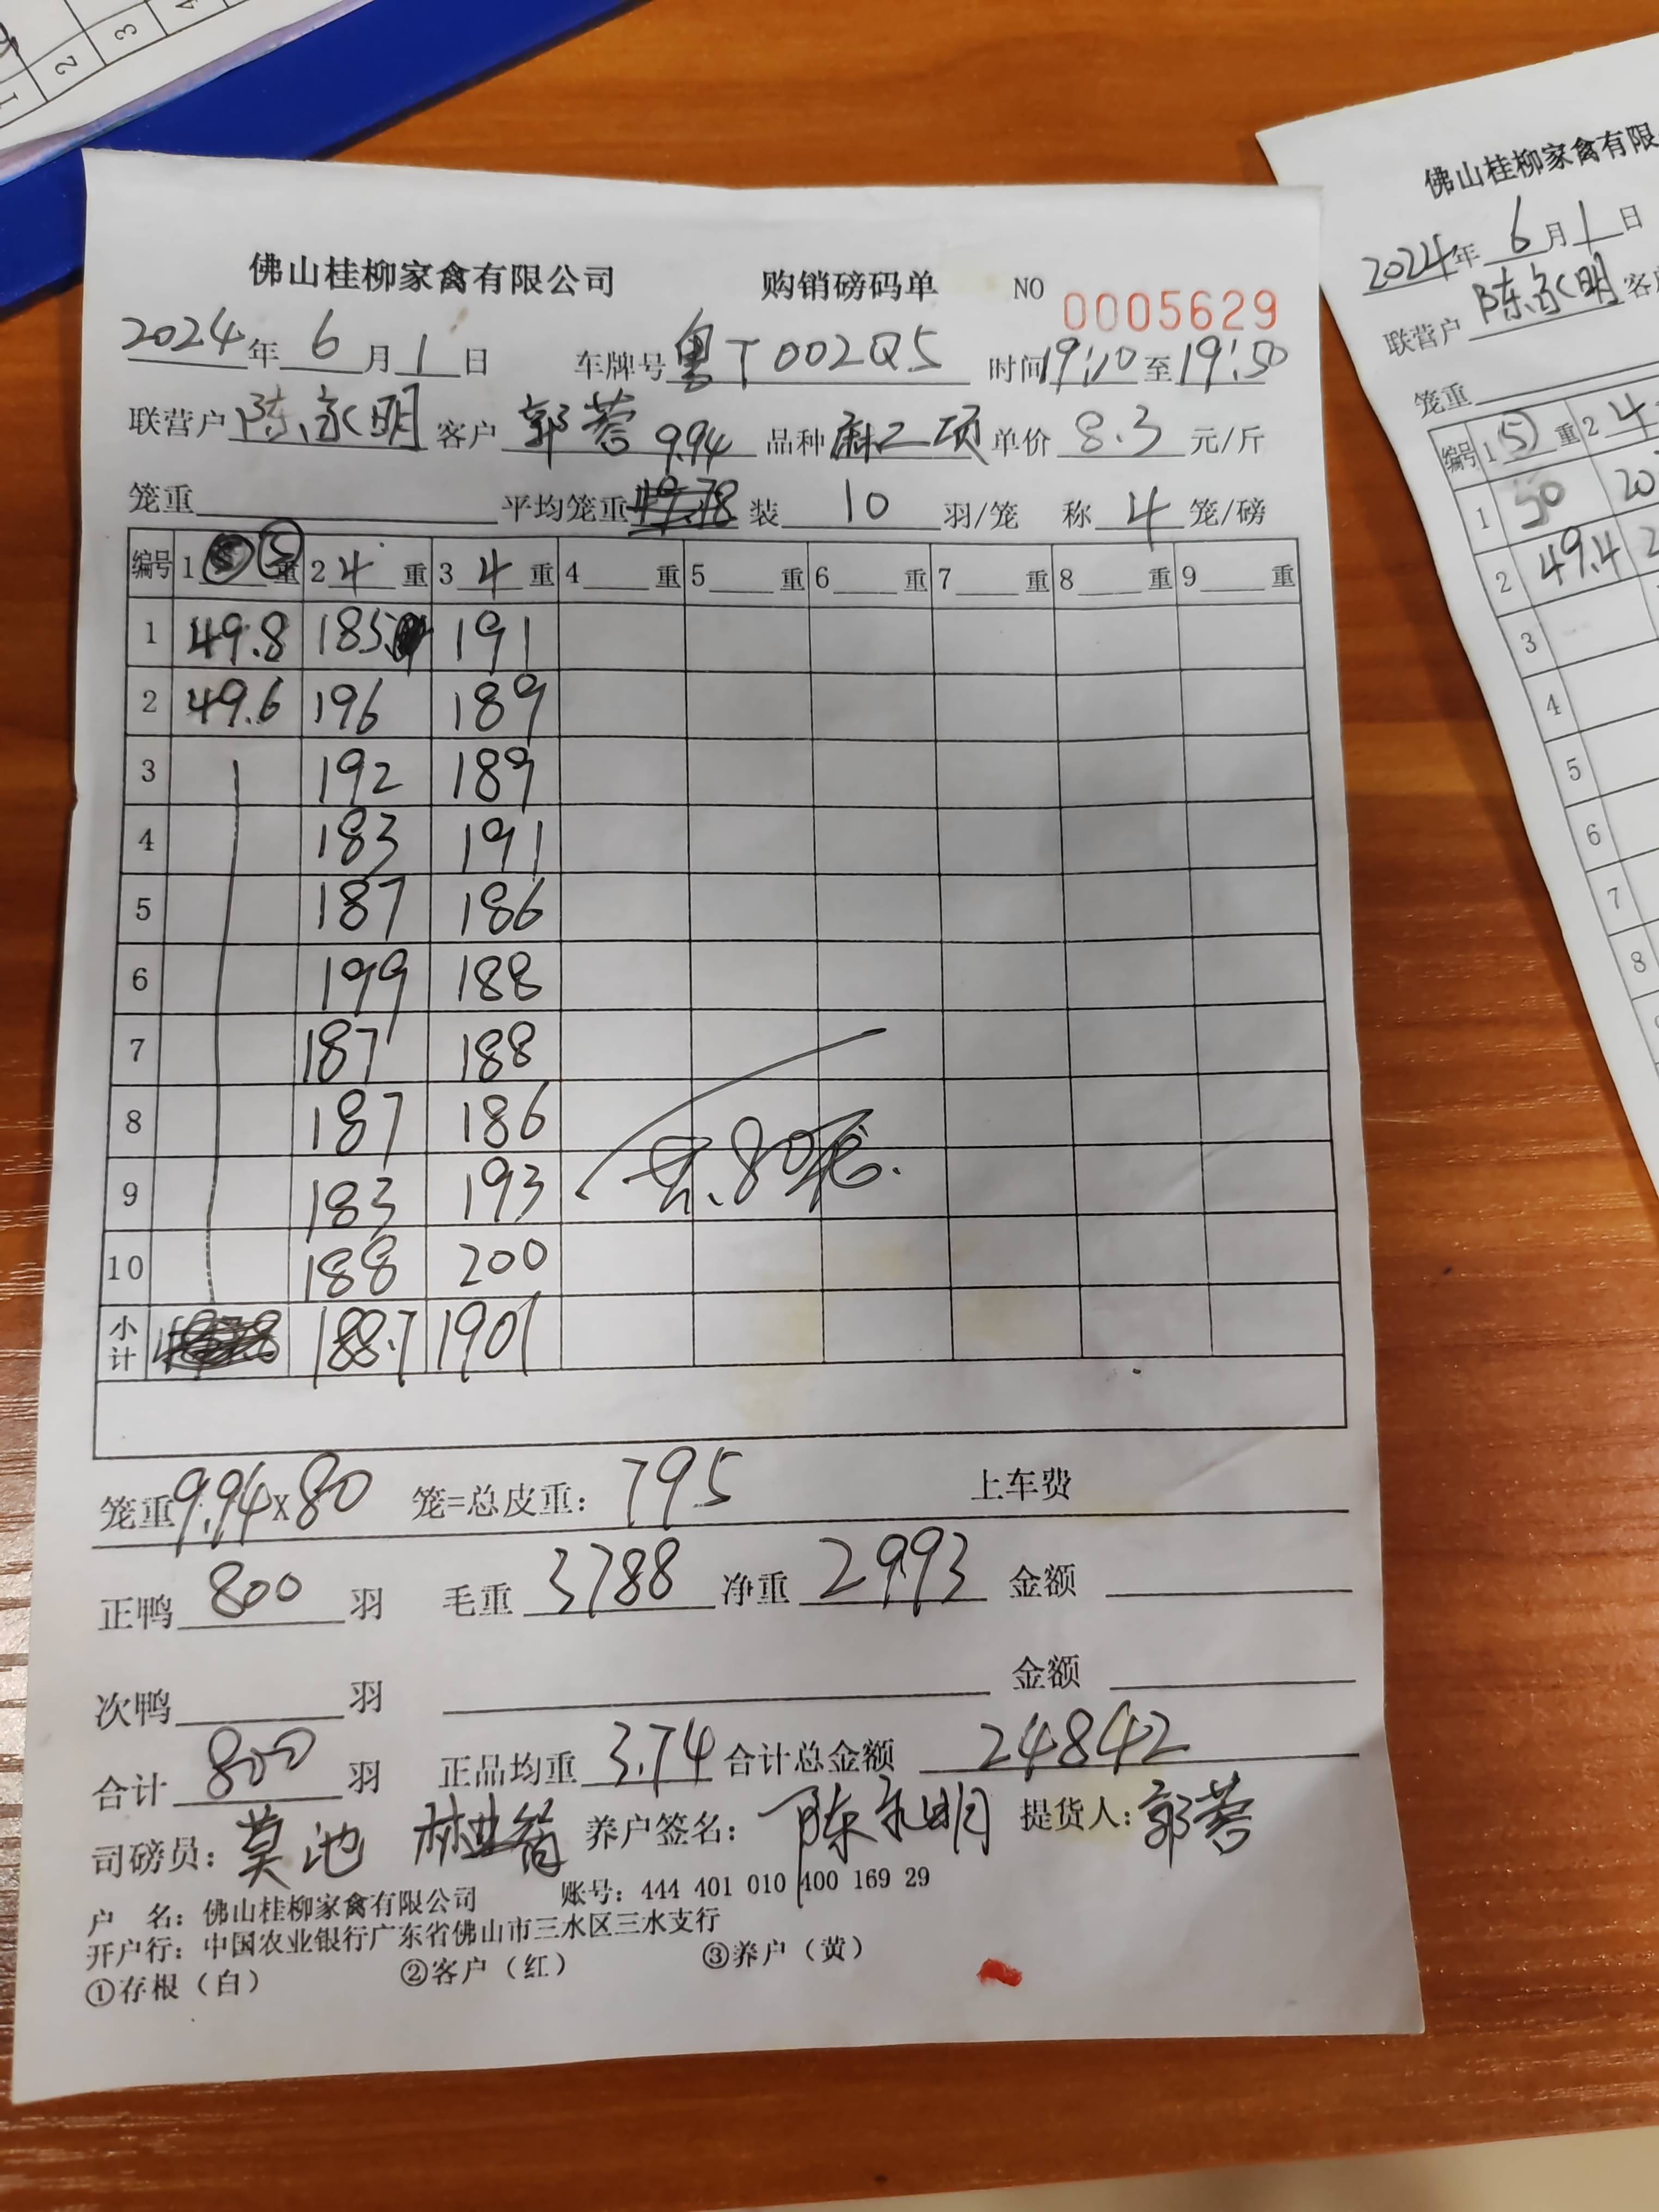 1 2 3 4
佛山桂柳家禽有限公司 购销磅码单 NO 0005629
2024年 6月1日 车牌号粤T002Q5 时间19:10至19:50
联营户陈永明 客户 郭蓉 9.94 品种麻二项 单价 8.3 元/斤
笼重 平均笼重 装 10 羽/笼 称 4 笼/磅
编号 1 ⑤重 2 4 重 3 4 重 4 重 5 重 6 重 7 重 8 重 9 重
1 49.8 185 191
2 49.6 196 189
3 192 189
4 183 191
5 187 186
6 199 188
7 187 188
8 187 186
9 183 193
共.80笼.
10 188 200
小计 188.7 1901
笼重9.94×80 笼=总皮重: 795 上车费
正鸭 800 羽 毛重 3788 净重 2993 金额
次鸭 羽 金额
合计 800 羽 正品均重 3.74 合计总金额 24842
司磅员: 莫池 养户签名: 陈永明 提货人: 郭蓉
户 名: 佛山桂柳家禽有限公司 账号: 444 401 010 400 169 29
开户行: 中国农业银行广东省佛山市三水区三水支行
①存根(白) ②客户(红) ③养户(黄)
佛山桂柳家禽有限
2024年 6月1日
联营户 陈永明 客户
笼重
编号 1 ⑤ 重 2 4
1 50 20
2 49.4 2
3
4
5
6
7
8